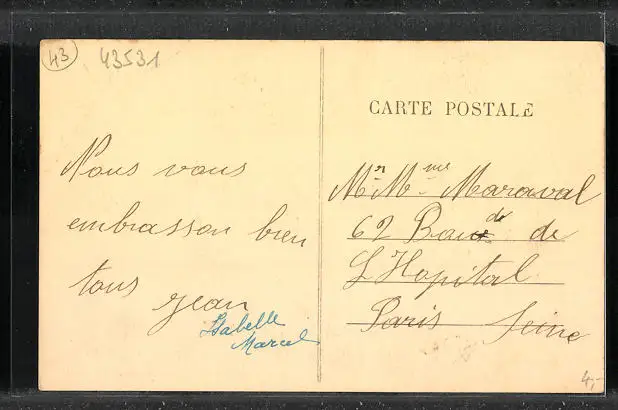 43
43531
CARTE POSTALE
Nous vous
embrasson bien
tous
Jean
Isabelle
Marcel
Mr Mme Maraval
62 de
L'Hopital
Paris Seine
4,-